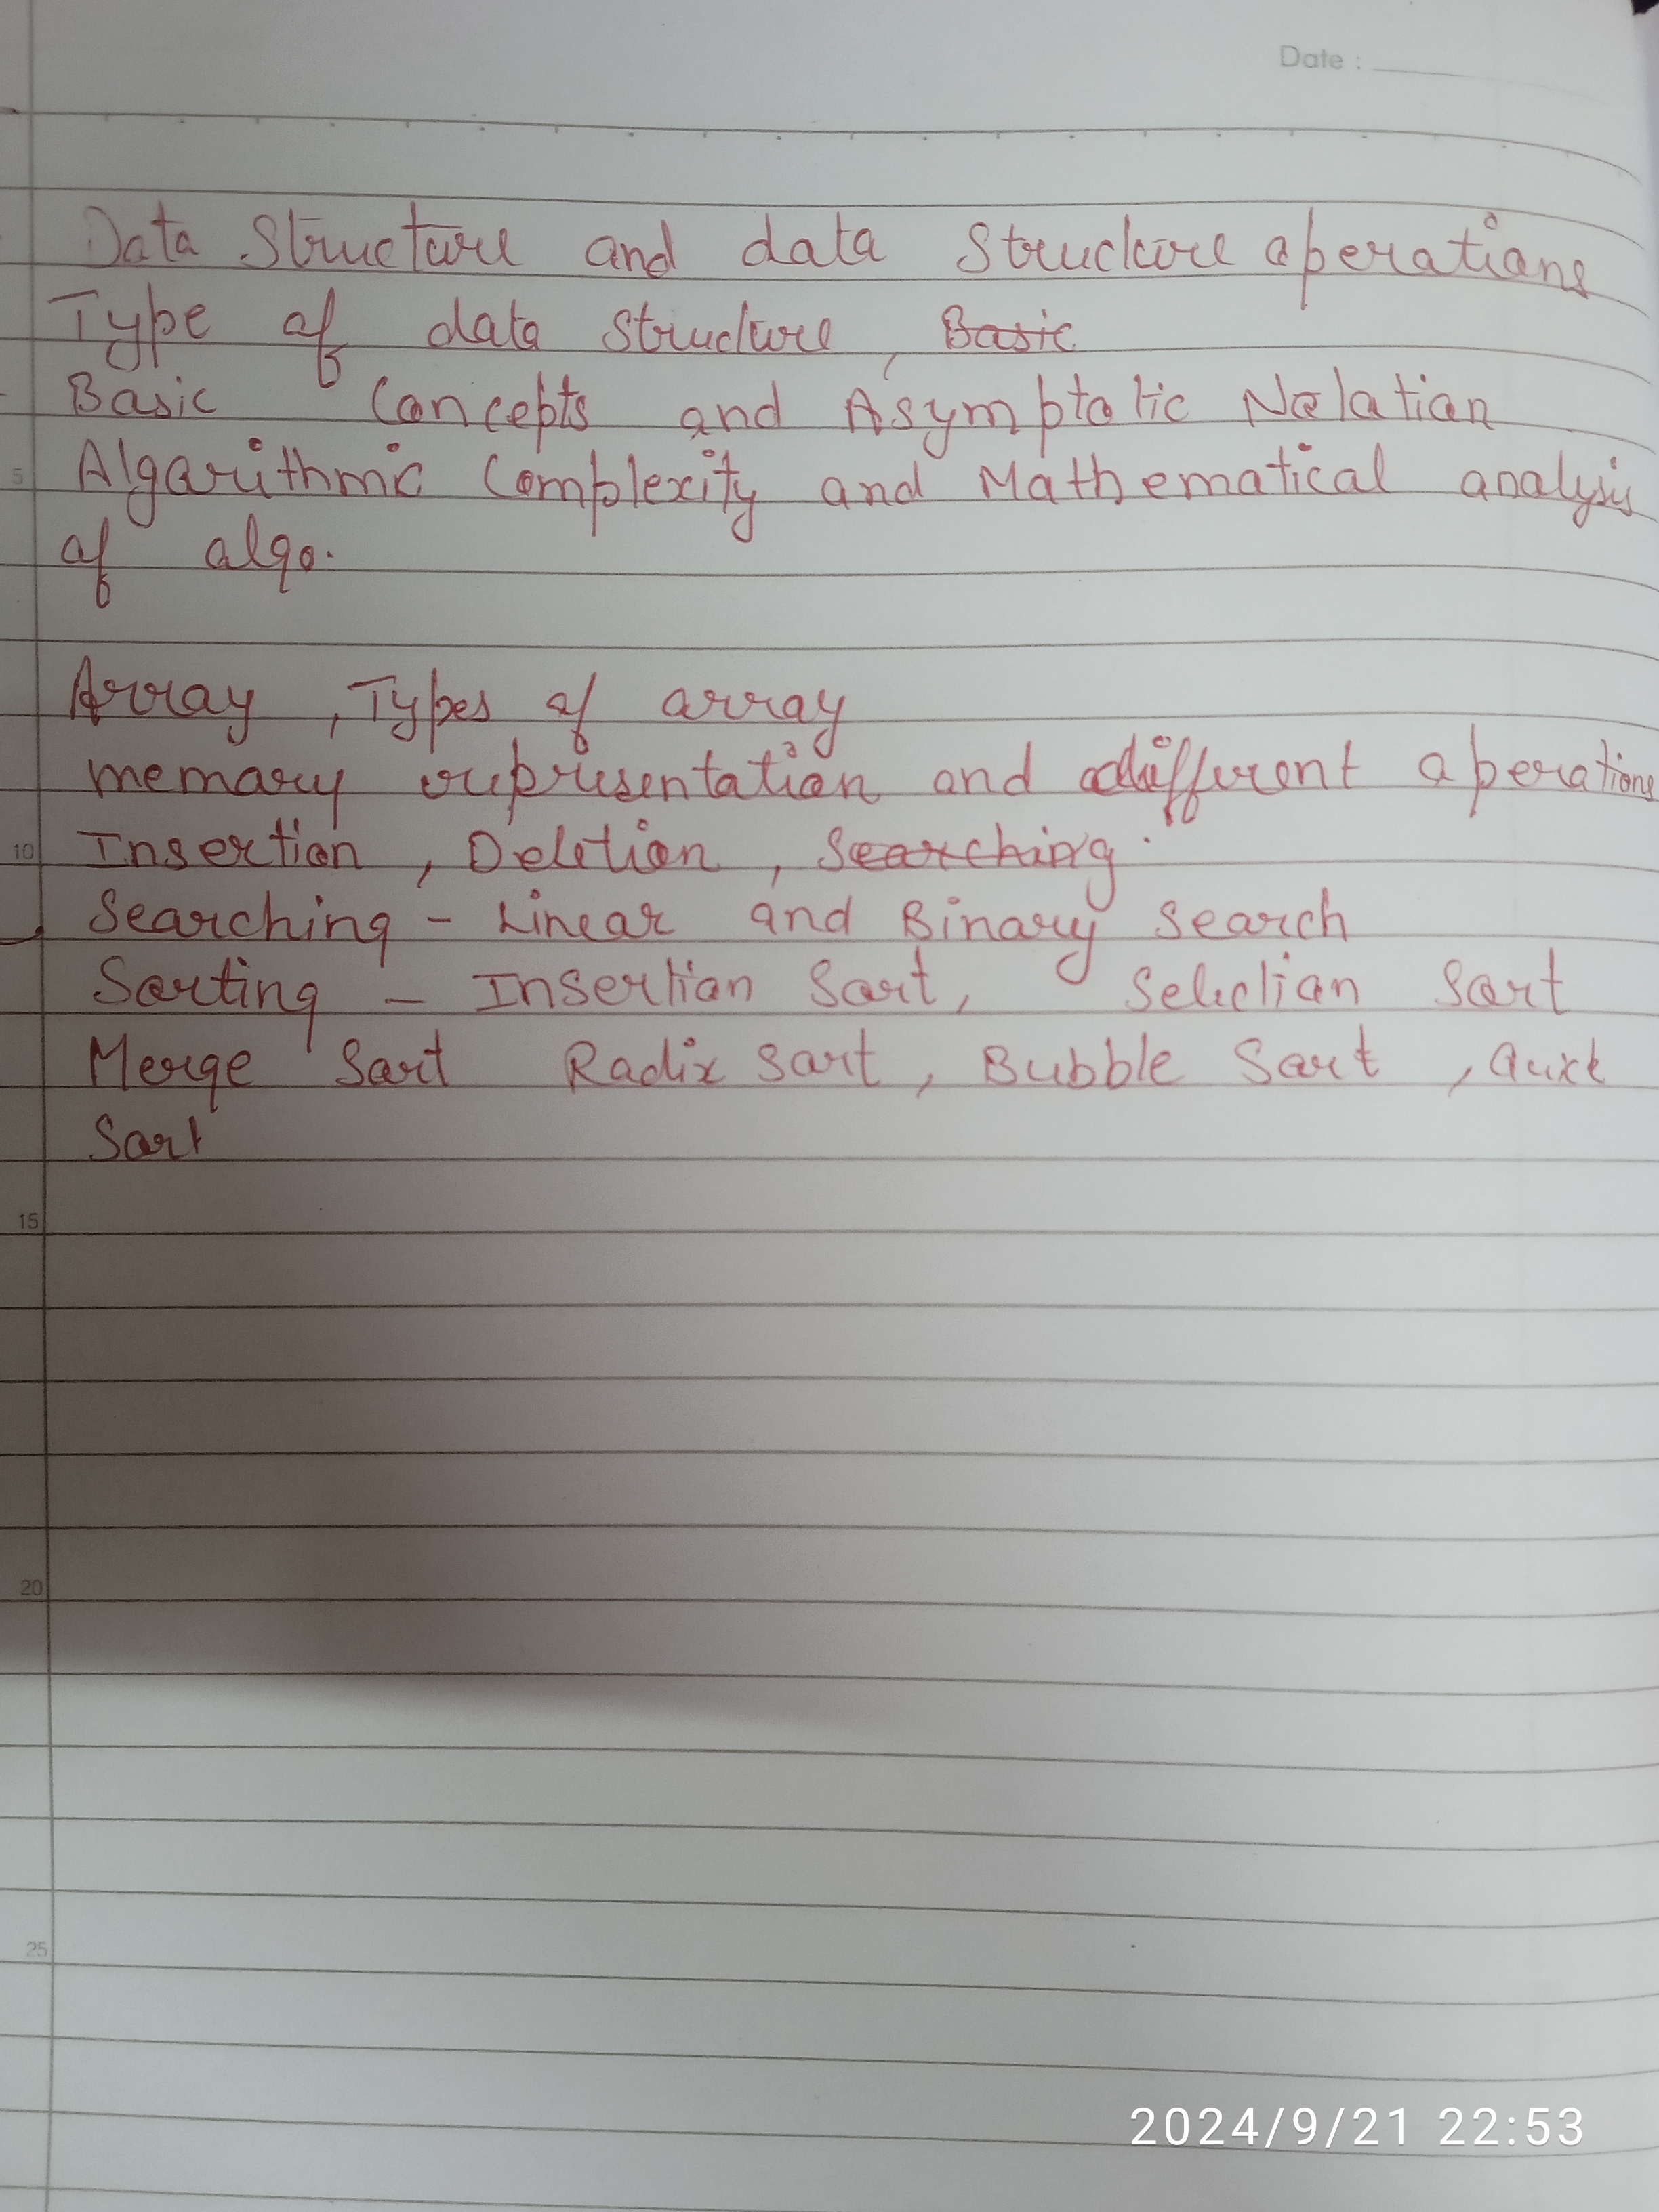 Date :
Data Structure and data Structure operations
Type of data structure, Basic
Basic Concepts and Asymptotic Notation
5 Algorithmic Complexity and Mathematical analysis
of algo.
Array, Types of array
memory representation and different operations
10 Insertion, Deletion, Searching.
Searching - Linear and Binary Search
Sorting - Insertion Sort, Selection Sort
Merge Sort Radix sort, Bubble Sort, Quick
Sort
15
20
25
2024/9/21 22:53